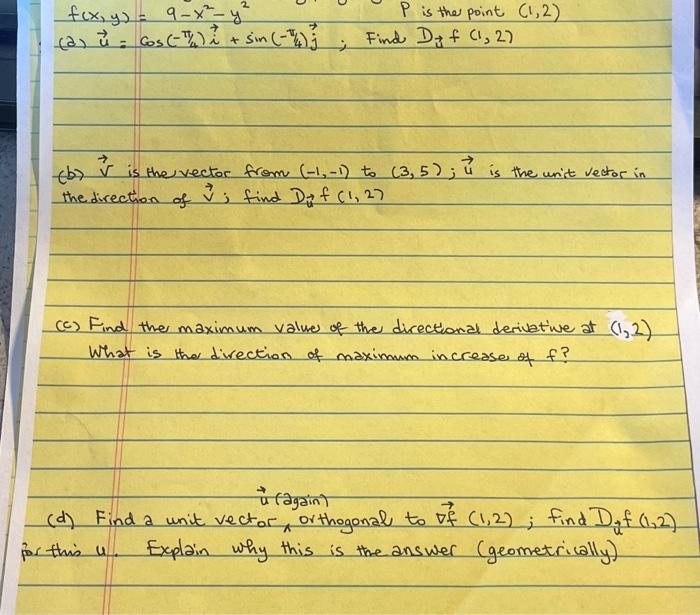 f(x,y) = 9-x²-y² P is the point (1,2)
(a) u⃗ = Cos(-π/4) i⃗ + sin(-π/4) j⃗ ; Find D_u⃗ f (1,2)
(b) v⃗ is the vector from (-1,-1) to (3,5) ; u⃗ is the unit vector in
the direction of v⃗ ; find D_u⃗ f (1,2)
(c) Find the maximum value of the directional derivative at (1,2)
What is the direction of maximum increase of f?
u⃗ (again)
(d) Find a unit vector ^ orthogonal to ∇f⃗ (1,2) ; find D_u⃗ f (1,2)
for this u. Explain why this is the answer (geometrically)